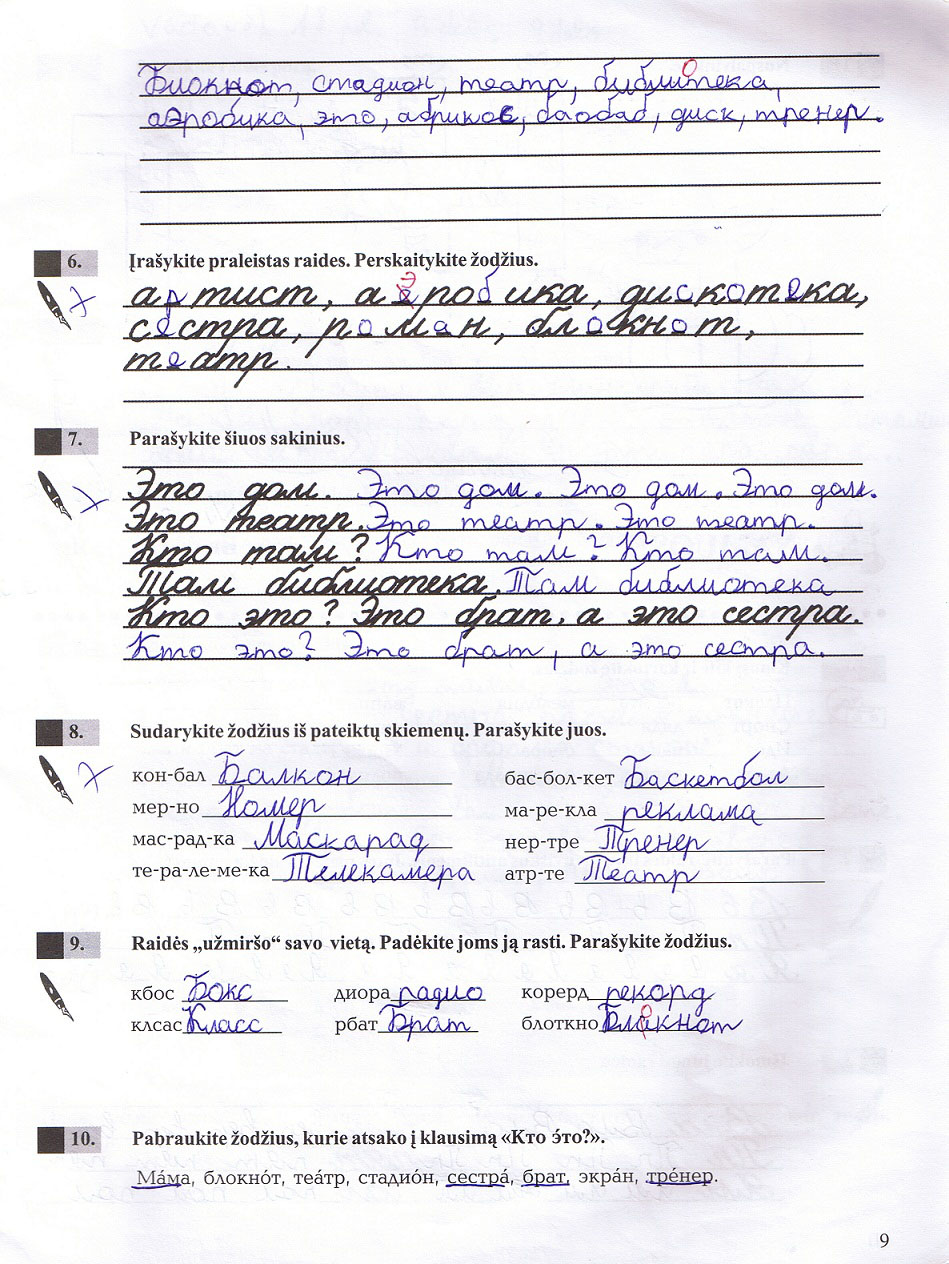 Блокнот, стадион, театр, библиотека,
аэробика, это, абрикос, баобаб, диск, тренер.
6. Įrašykite praleistas raides. Perskaitykite žodžius.
артист, аэробика, дискотека,
сестра, роман, блокнот,
театр.
7. Parašykite šiuos sakinius.
Это дом. Это дом. Это дом. Это дом.
Это театр. Это театр. Это театр.
Кто там? Кто там? Кто там.
Там библиотека. Там библиотека
Кто это? Это брат, а это сестра.
Кто это? Это брат, а это сестра.
8. Sudarykite žodžius iš pateiktų skiemenų. Parašykite juos.
кон-бал Балкон бас-бол-кет Баскетбол
мер-но Номер ма-ре-кла реклама
мас-рад-ка Маскарад нер-тре Тренер
те-ра-ле-ме-ка Телекамера атр-те Театр
9. Raidės „užmiršo“ savo vietą. Padėkite joms ją rasti. Parašykite žodžius.
кбос Бокс диора радио корерд рекорд
клсас Класс рбат Брат блоткно Блокнот
10. Pabraukite žodžius, kurie atsako į klausimą «Кто э́то?».
Ма́ма, блокно́т, теа́тр, стадио́н, сестра́, брат, экра́н, тре́нер.
9